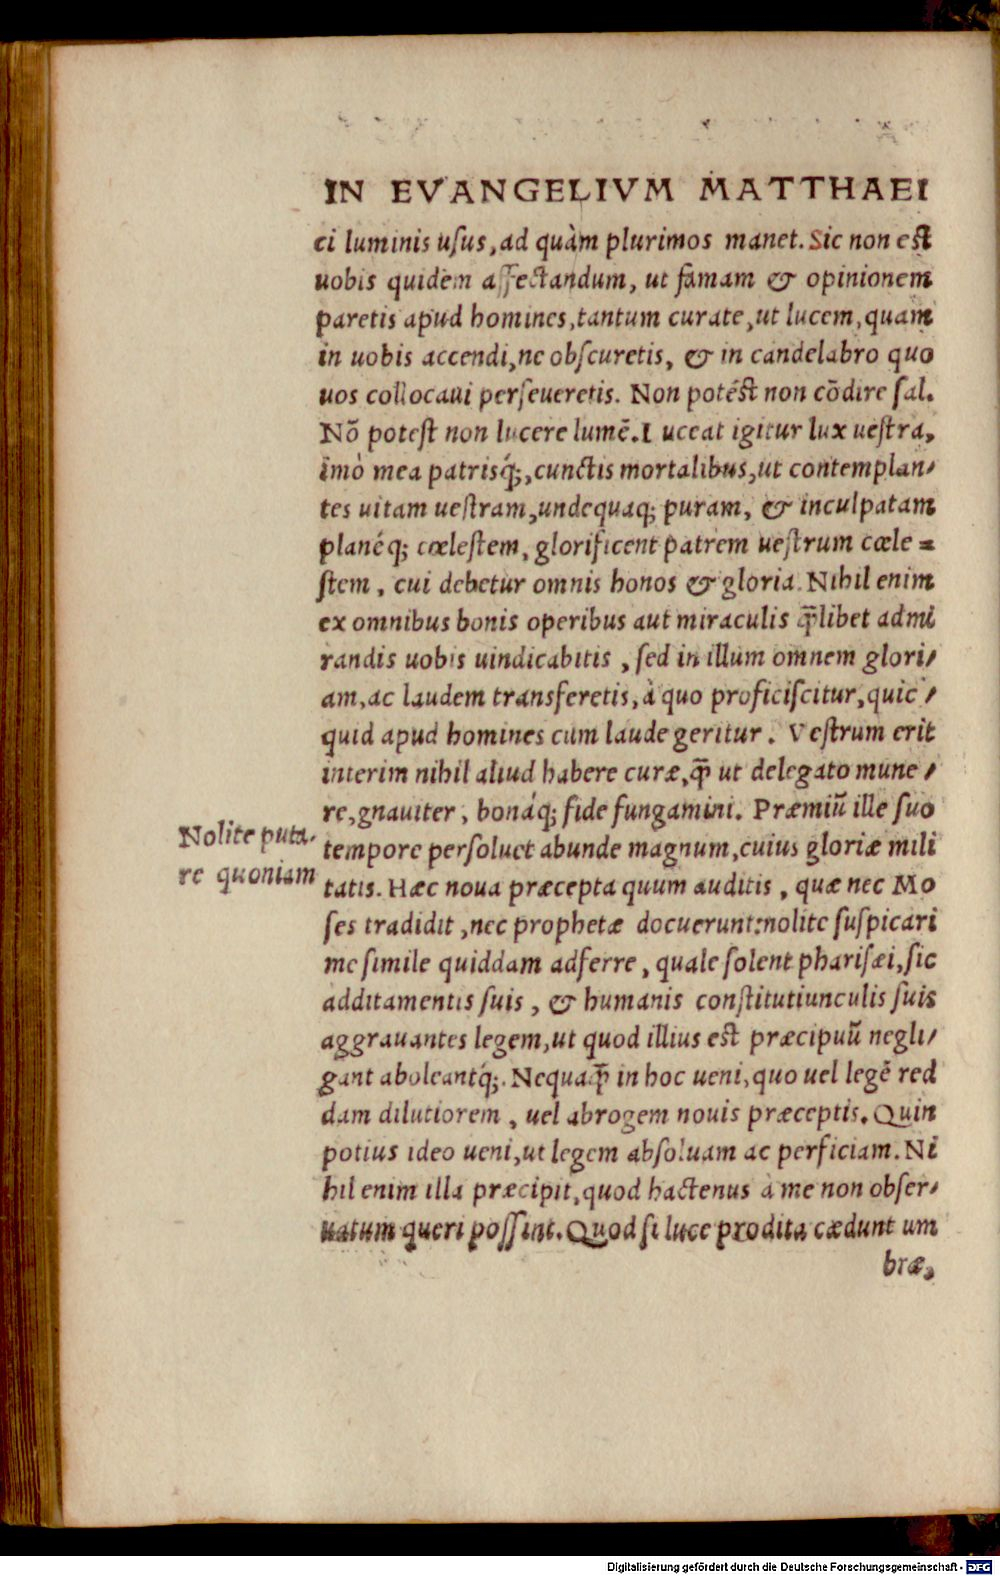 IN EVANGELIVM MATTHAEI
ci luminis uſus, ad quàm plurimos manet. Sic non eſt
uobis quidem affectandum, ut famam & opinionem
paretis apud homines, tantum curate, ut lucem, quam
in uobis accendi, ne obſcuretis, & in candelabro quo
uos collocaui perſeueretis. Non poteſ́t non cōdire ſal.
Nō poteſt non lucere lumē. Luceat igitur lux ueſtra,
imò mea patrisq́;, cunctis mortalibus, ut contemplan/
tes uitam ueſtram, undequaq; puram, & inculpatam
planéq; cœleſtem, glorificent patrem ueſtrum cœle=
ſtem, cui debetur omnis honos & gloria. Nihil enim
ex omnibus bonis operibus aut miraculis q̄libet admi
randis uobis uindicabitis, ſed in illum omnem glori/
am, ac laudem transferetis, à quo proficiſcitur, quic/
quid apud homines cum laude geritur. Veſtrum erit
interim nihil aliud habere curæ, q̄ ut delegato mune/
re, gnauiter, bonáq; fide fungamini. Præmiū ille ſuo
tempore perſoluet abunde magnum, cuius gloriæ mili
tatis. Hæc noua præcepta quum auditis, quæ nec Mo
ſes tradidit, nec prophetæ docuerunt: nolite ſuſpicari
me ſimile quiddam adferre, quale ſolent phariſæi, ſic
additamentis ſuis, & humanis conſtitutiunculis ſuis
aggrauantes legem, ut quod illius eſt præcipuū negli/
gant aboleantq́;. Nequaq̄ in hoc ueni, quo uel legē red
dam dilutiorem, uel abrogem nouis præceptis. Quin
potius ideo ueni, ut legem abſoluam ac perficiam. Ni
hil enim illa præcipit, quod hactenus à me non obſer/
uatum queri poſſint. Quod ſi luce prodita cædunt um
bræ,
Nolite puta.
re quoniam
Digitalisierung gefördert durch die Deutsche Forschungsgemeinschaft - DFG